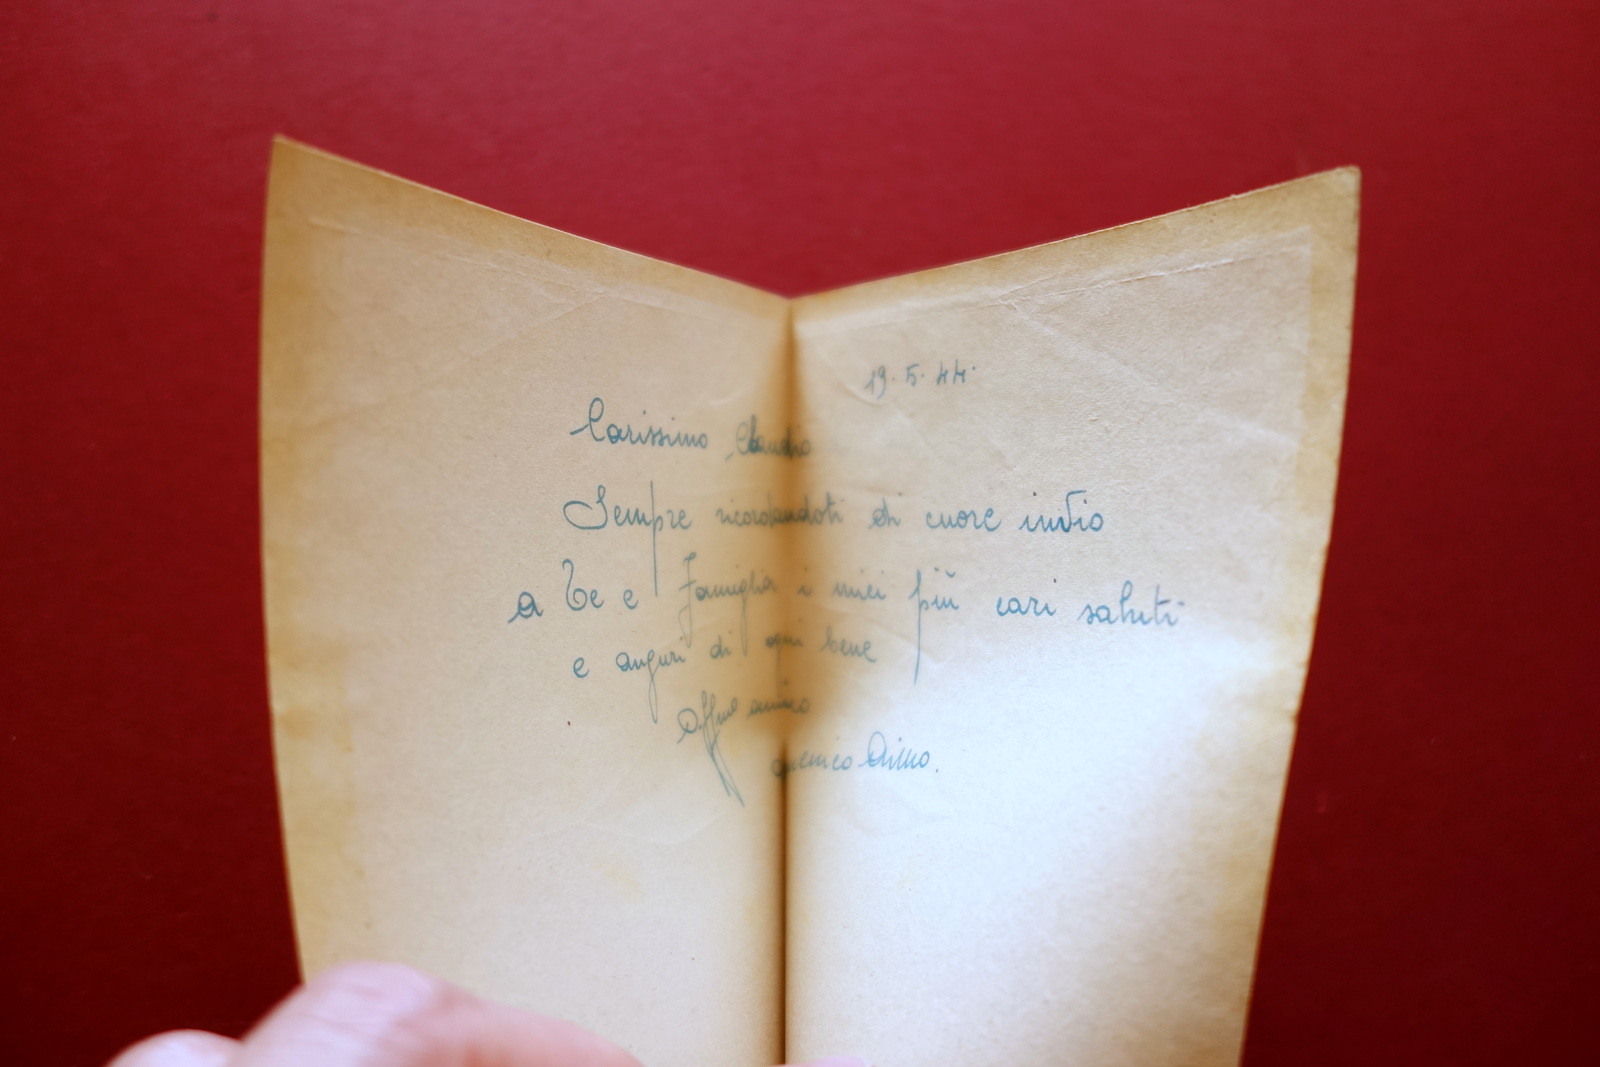 19.5.44.
Carissimo Claudio
Sempre ricordandoti di cuore invio
a Te e Famiglia i miei più cari saluti
e auguri di ogni bene
Affmo amico
Aimo.